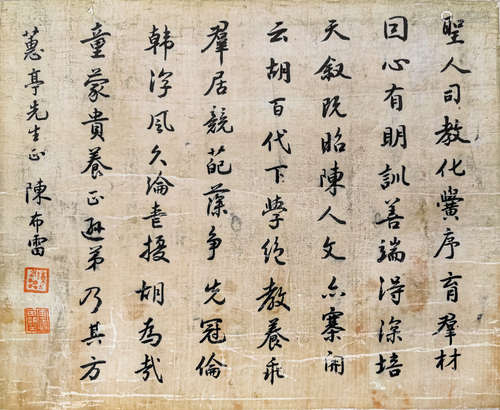 聖人司教化黌序育羣材
因心有明訓善端得深培
天叙既昭陳人文亦褰開
云胡百代下學絕教養乖
羣居競葩藻爭先冠倫
魁淳風久淪喪擾胡為哉
童蒙貴養正遜弟乃其方
蕙亭先生正 陳布雷